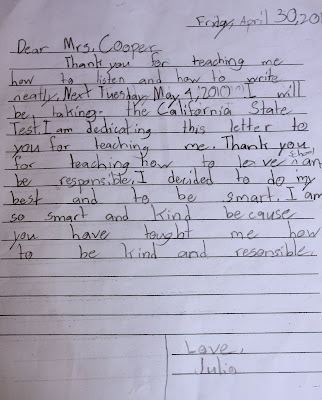 Friday, April 30, 201
Dear Mrs. Cooper
Thank you for teaching me
how to listen and how to write
neatly. Next Tuesday May 4, 2010 I will
be taking the California State
Test. I am dedicating this letter to
you for teaching me. Thank you
for teaching how to leave
be responsible. I decided to do my
best and to be smart. I am
so smart and kind because
you have tought me how
to be kind and resonsible.
Love,
Julia